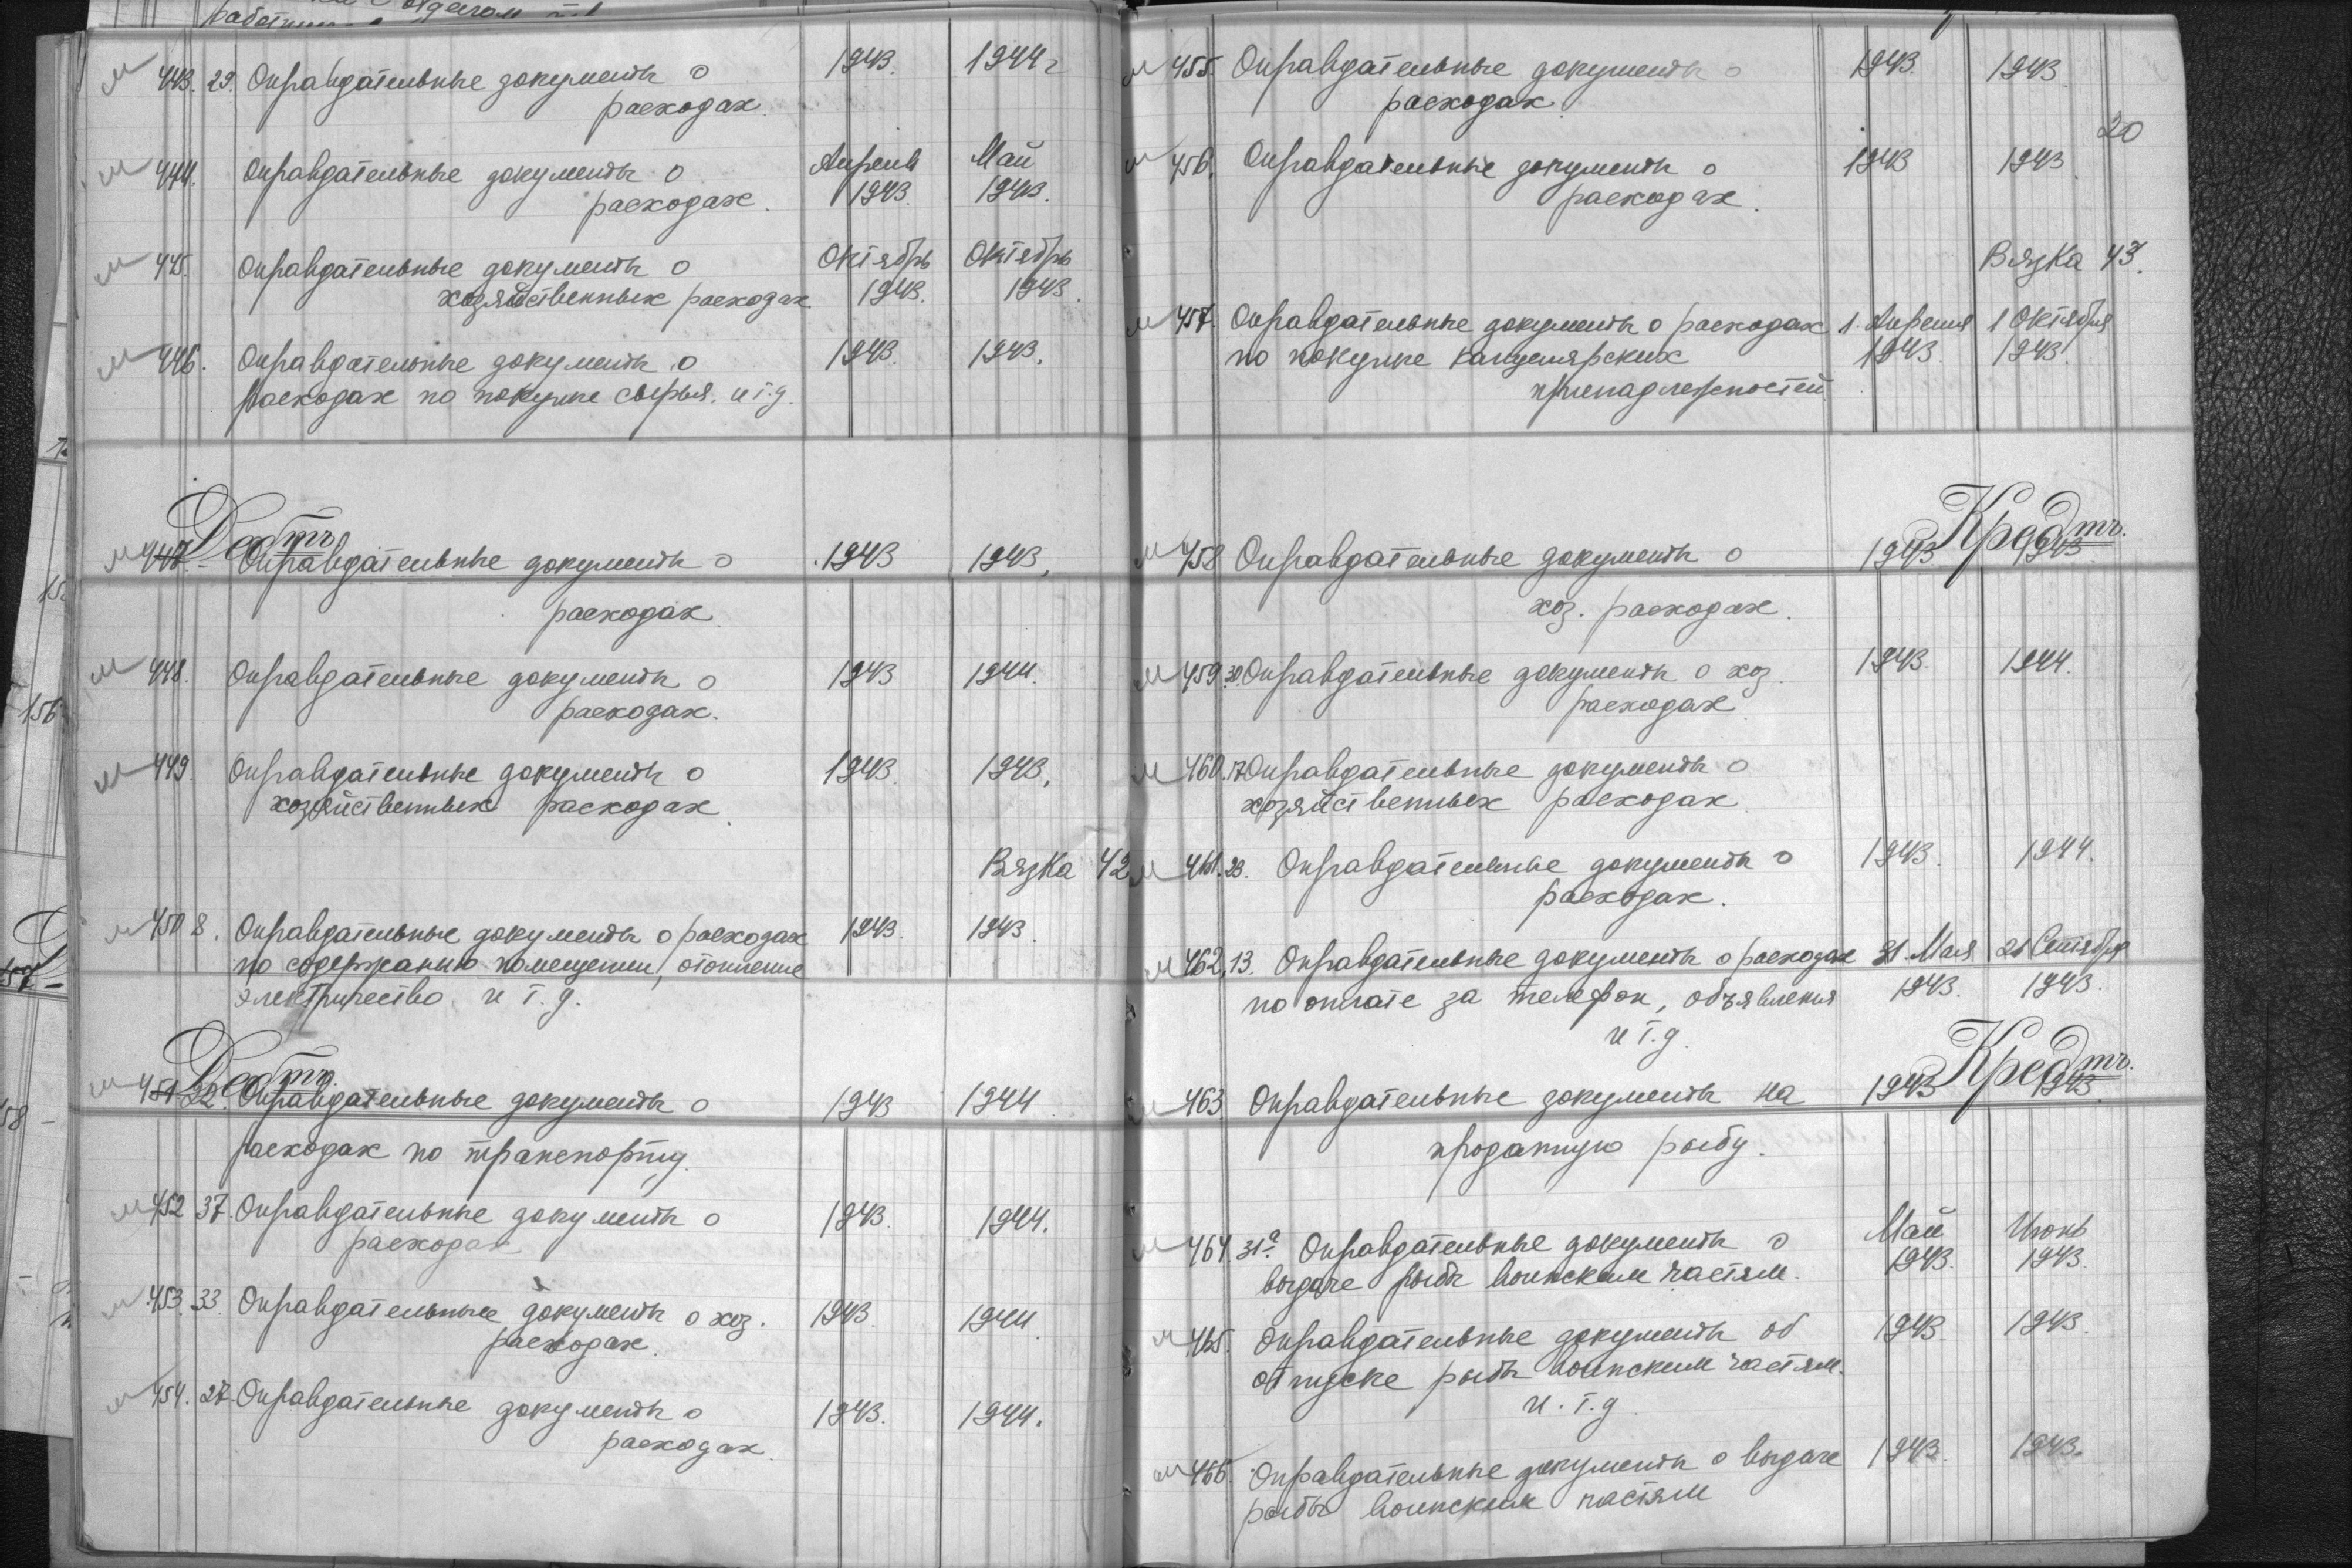 443. 29. Оправдательные документы о 1943. 1944 г
расходах.
444. Оправдательные документы о Апрель Май
расходах. 1943. 1943.
445. Оправдательные документы о Октябрь Октябрь
хозяйственных расходах 1943. 1943.
446. Оправдательные документы о 1943. 1943.
расходах по покупке сырья. и т.д.
Дебетъ
447 Оправдательные документы о 1943 1943.
расходах.
448. Оправдательные документы о 1943 1944.
расходах.
449. Оправдательные документы о 1943. 1943.
хозяйственных расходах.
Вязка 42
450 8. Оправдательные документы о расходах 1943. 1943.
по содержанию помещении, отопление
электричество, и т.д.
Дебетъ
451 22. Оправдательные документы о 1943 1944.
расходах по транспорту.
452 37. Оправдательные документы о 1943. 1944.
расходах
453. 33. Оправдательные документы о хоз. 1943. 1944.
расходах.
454. 27. Оправдательные документы о 1943. 1944.
расходах.
455. Оправдательные документы о 1943. 1943
расходах.
20
456. Оправдательные документы о 1943 1943.
расходах.
Вязка 43.
457. Оправдательные документы о расходах 1. Апреля 1 Октября
по покупке канцелярских 1943. 1943.
принадлежностей.
Кредитъ.
458 Оправдательные документы о 1943. 1943.
хоз. расходах.
459. 30. Оправдательные документы о хоз. 1943. 1944.
расходах.
460. 17 Оправдательные документы о
хозяйственных расходах.
461. 23. Оправдательные документы о 1943. 1944.
расходах.
462. 13. Оправдательные документы о расходах 31. Мая 21 Сентября
по оплате за телефон, объявления 1943. 1943.
и т.д.
Кредитъ.
463 Оправдательные документы на 1943 1943.
проданную рыбу.
464. 31а. Оправдательные документы о Май Июнь
выдаче рыбы воинским частям. 1943. 1943.
465. Оправдательные документы об 1943. 1943.
отпуске рыбы воинским частям.
и. т.д.
466. Оправдательные документы о выдаче 1943. 1943.
рыбы воинским частям